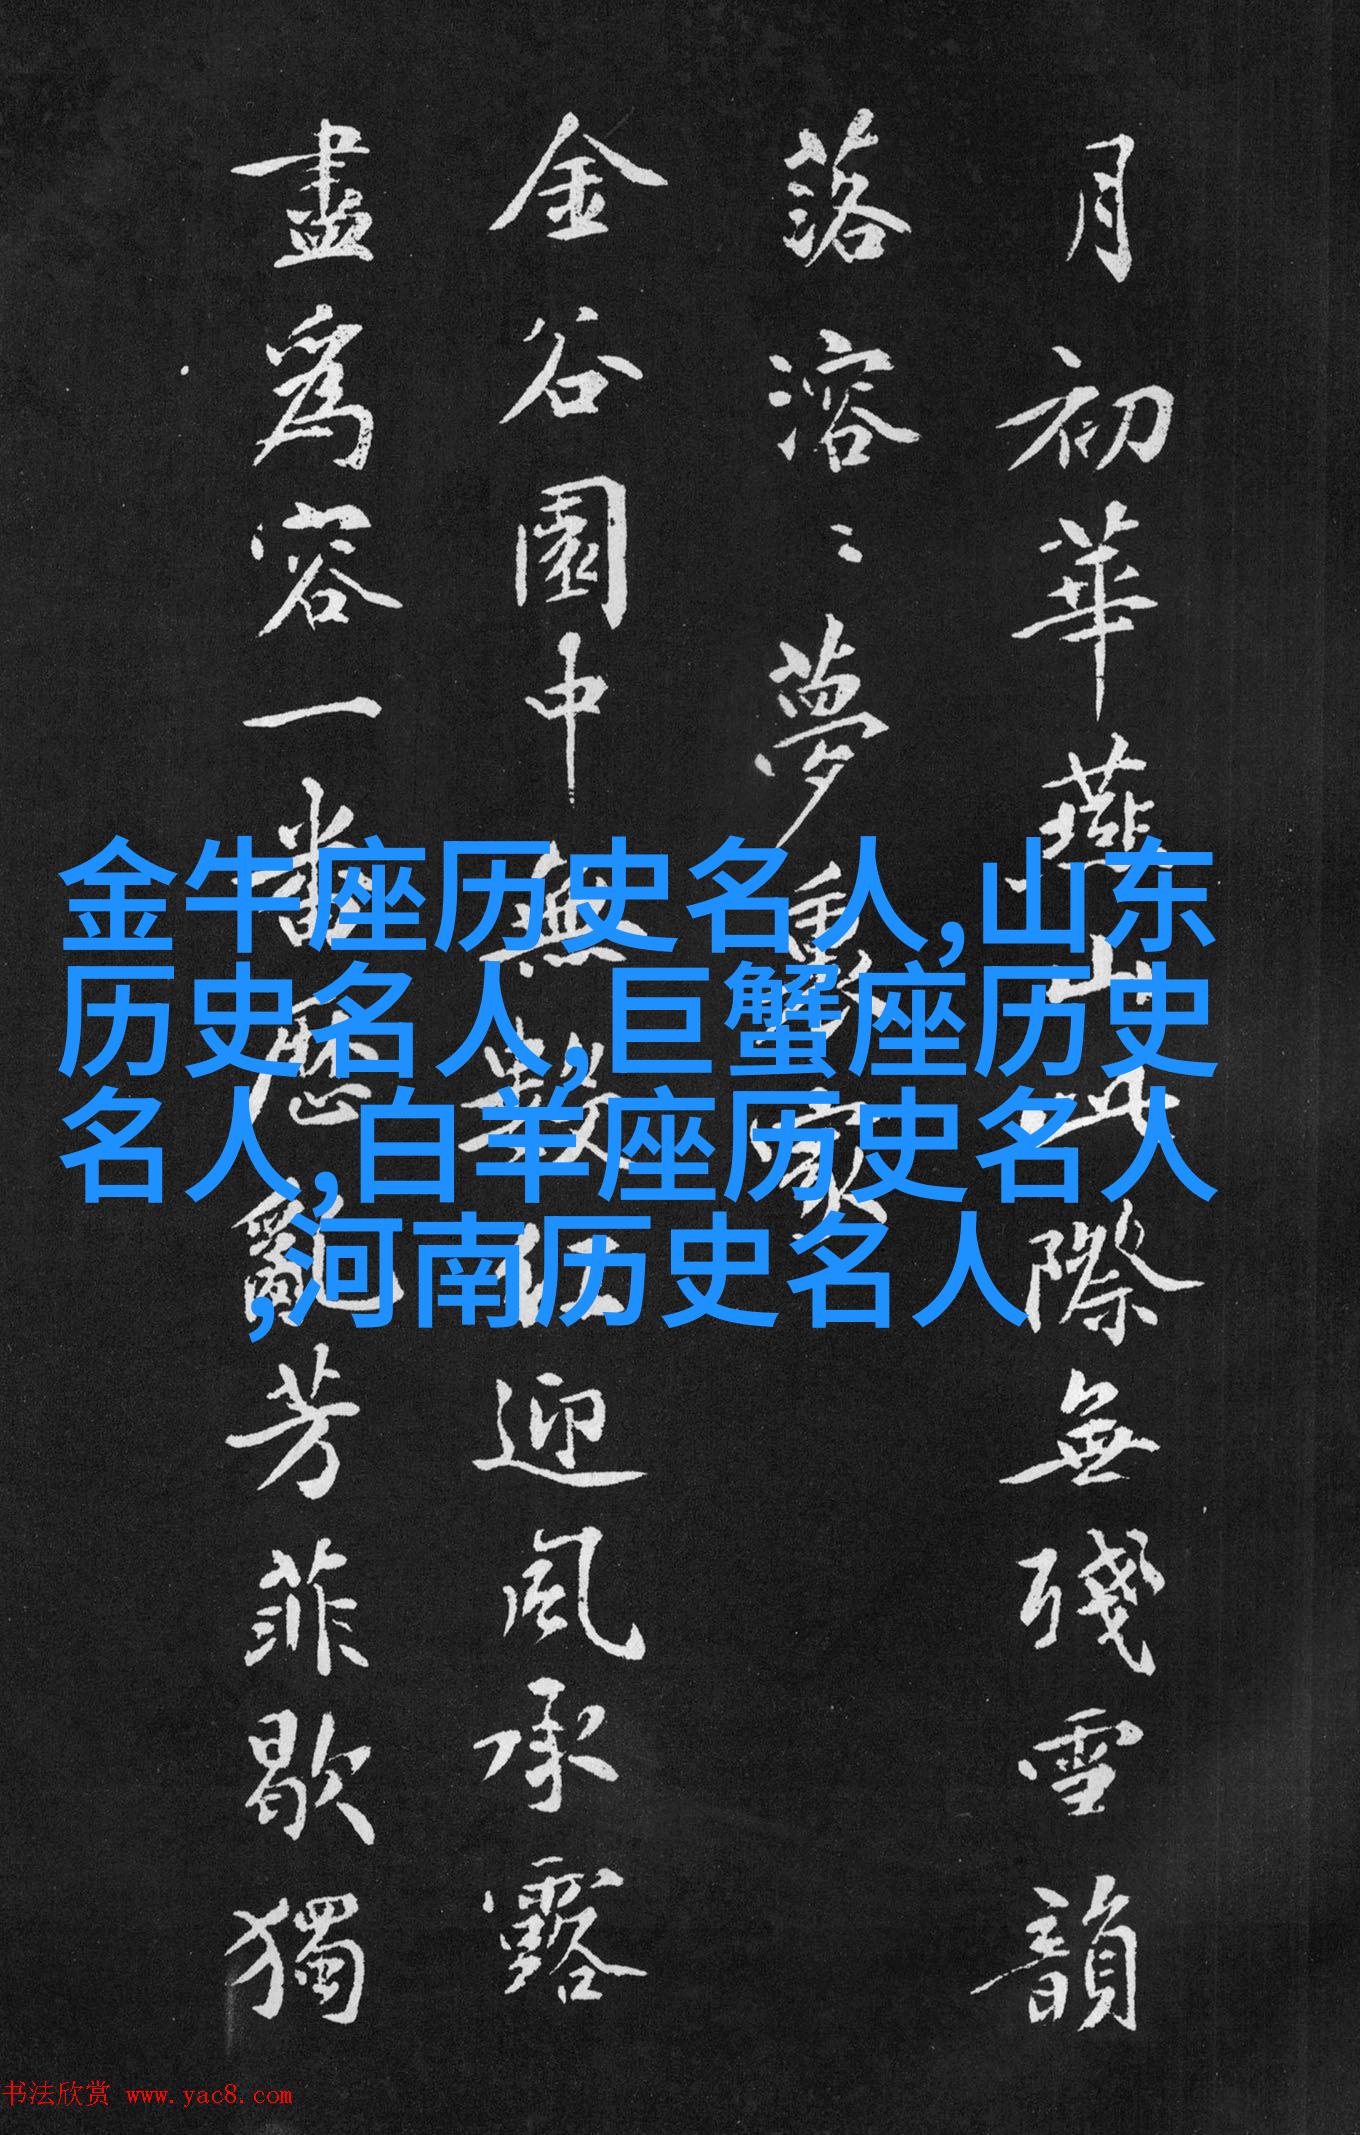 月初華燕山此際無殘雪韻
落溶〻夢裏家
金谷園中無數紅迎風承露
盡為容一番歷亂芳菲歇獨
金牛座历史名人,山东
历史名人,巨蟹座历史
名人,白羊座历史名人
,河南历史名人
书法欣赏 www.yac8.com